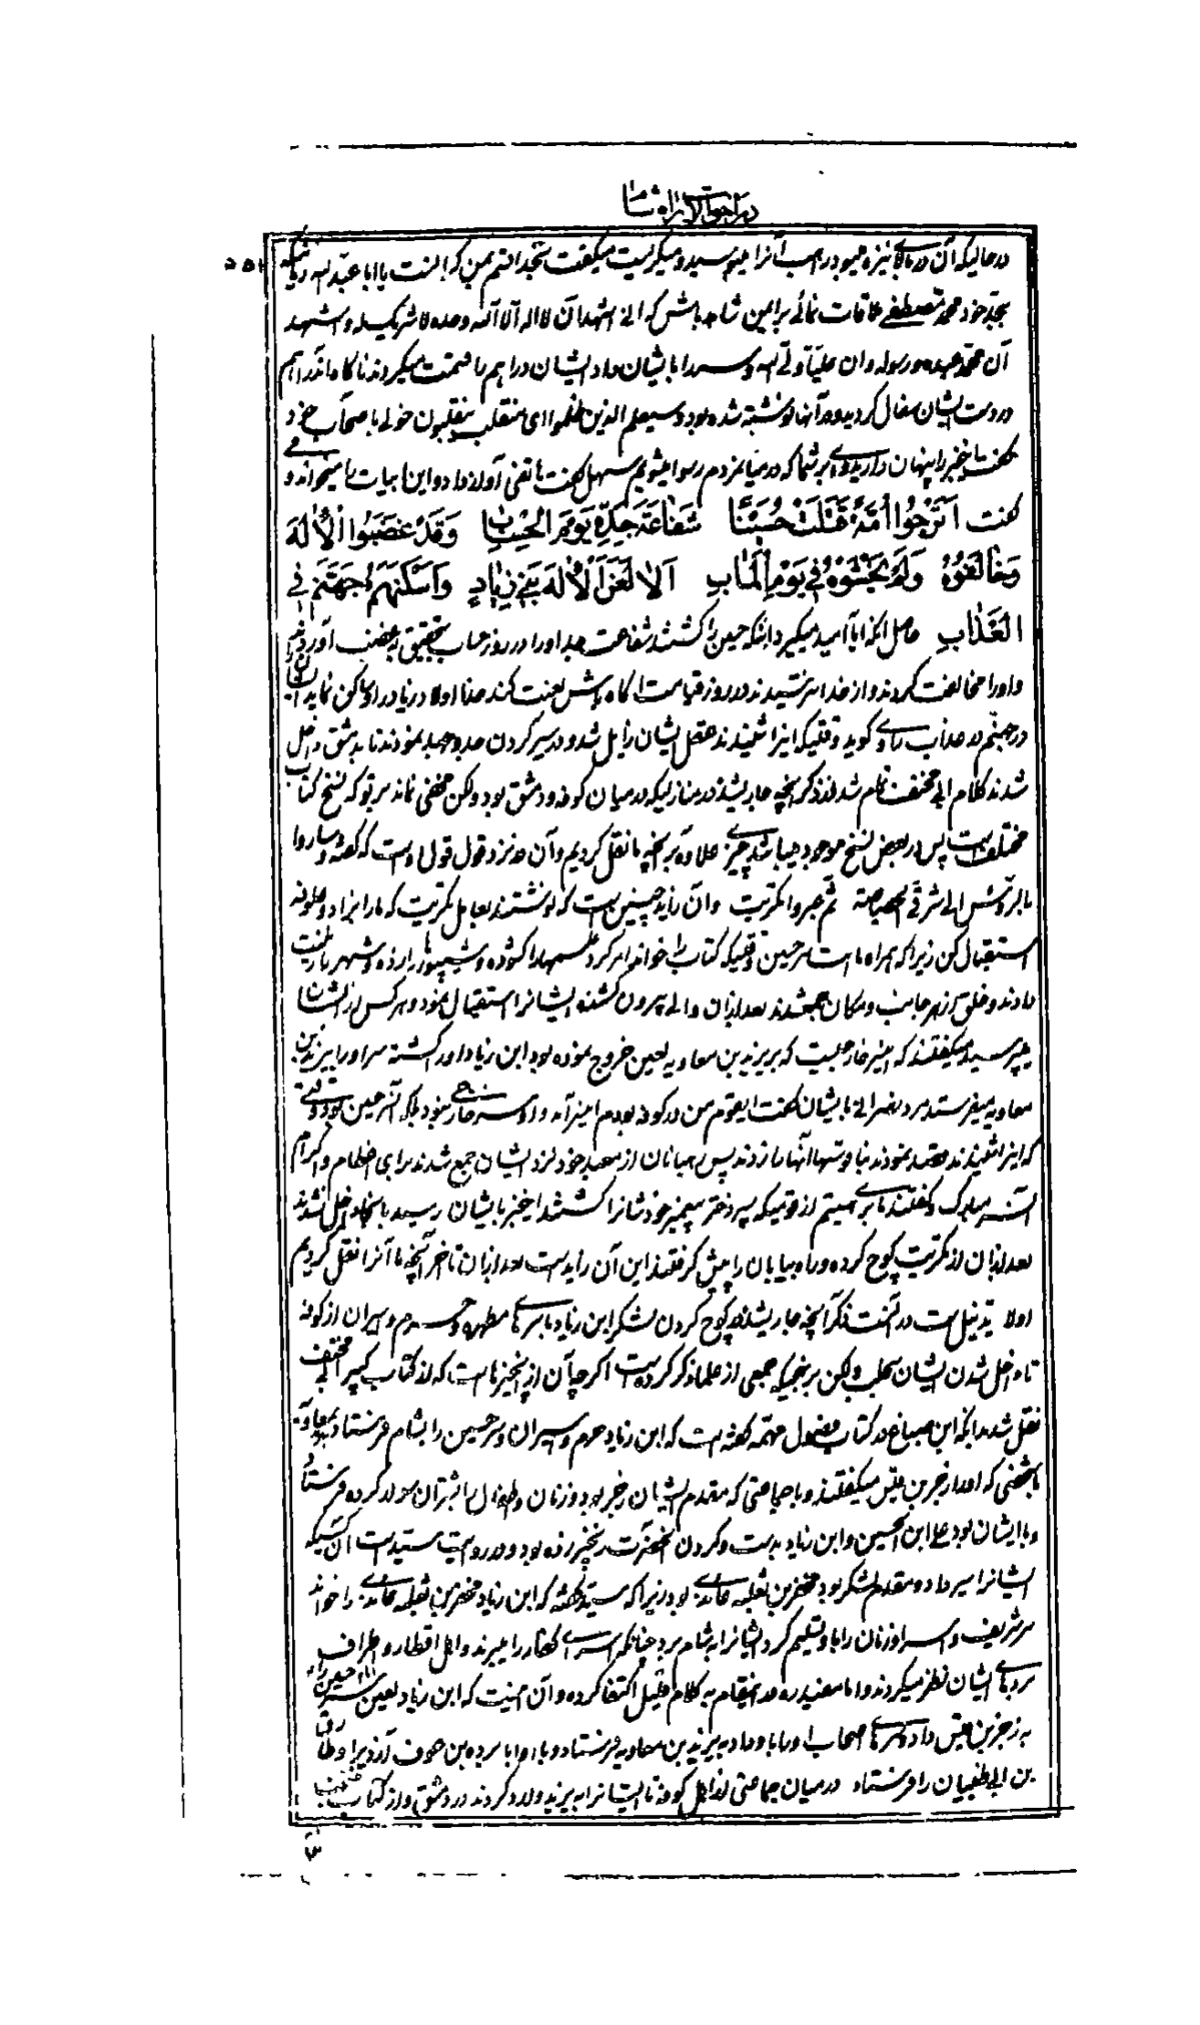 در احوالات راه شام
در حالیکه آن در بالای نیزه میبود راهب آنرا میبوسید و میگریست میگفت بخدا قسم بمن گرانست یا ابا عبد الله
بجد خود محمد مصطفی ملاقات نمائی براین شاهد باش که انی اشهد ان لا اله الا الله وحده لا شریک له و اشهد
ان محمد عبده و رسوله و ان علیا ولی الله و سر را بایشان داد ایشان دراهم را قسمت میکردند ناگاه دراهم
در دست ایشان سفال گردید و در آنها نوشته شده بود و سیعلم الذین ظلموا ای منقلب ینقلبون خولی باصحاب خود
گفت این خبر را پنهان دارید وای بر شما که در میان مردم رسوا میشویم سهل گفت هاتفی آواز داد و این ابیات را میخواند و
گفت اترجوا امة قتلت حسینا شفاعة جده یوم الحساب وقد غضبوا الاله
وخالفوه ولم یخشوه فی یوم الماب الا لعن الاله بنی زیاد واسکنهم جهنم فی
العذاب حاصل آنکه آیا امید میگیرد امتیکه حسین را کشتند شفاعت جد او را در روز حساب بتحقیق بغضب آوردند
و او را مخالفت کردند و از خدا نترسیدند در روز قیامت آگاه باش لعنت کند خدا اولاد زیاد را و ساکن نماید ایشان
در جهنم در عذاب راوی گوید وقتیکه اینرا شنیدند عقل ایشان زایل شد و در سیر کردن جد و جهد نمودند تا بدمشق داخل
شدند کلام ابی مخنف تمام شد در ذکر آنچه جاریشد در منازلیکه در میان کوفه و دمشق بود ولکن مخفی نماند بر تو که نسخ کتاب
مختلف است پس در بعض نسخ موجود میباشد چیزی علاوه بر آنچه ما نقل کردیم و آن در نزد قول قول اوست که گفته و ساروا
بالرؤس الی شرقی الحصاصة ثم عبروا تکریت و آن زاید چنین است که نوشتند بعامل تکریت که ما را بزاد و علوفه
استقبال کن زیرا که همراه ماست سر حسین وقتیکه کتاب را خواند امر کرد علمها را گشوده و شیپورها را زده و شهر را زینت
دادند و خلق از هر جانب و مکان جمع شدند بعد از آن والی بیرون گشته ایشانرا استقبال نمود و هر کس از ایشان
میپرسید میگفتند که این سر خارجیست که بر یزید بن معاویه لعین خروج نموده بود ابن زیاد او را کشته سر او را به یزید بن
معاویه میفرستد مرد نصرانی بایشان گفت ایقوم من در کوفه بودم این سر آمد و از سر خارجی نبود بلکه آن سر حسین بود وقتی
که اینرا شنیدند قصد نمودند بناقوسها آنها را زدند پس رهبانان از معبد خود نزد ایشان جمع شدند برای اعظام و اکرام
آن سر مبارک و گفتند ما بری هستیم از قومیکه پسر دختر پیغمبر خودشانرا کشتند این خبر بایشان رسید بآنجا داخل نشدند
بعد از آن از تکریت کوچ کرده و راه بیابان را پیش گرفتند این آن زاید است بعد از آن تا آخر آنچه ما آنرا نقل کردیم
اولا تذنیل است در تحت ذکر آنچه جاریشد از کوچ کردن لشکر ابن زیاد با سرهای مطهره و حرم و اسیران از کوفه
تا داخل شدن ایشان بحلب ولکن بر نهجیکه جمعی از علما ذکر کرده است اگر چه آن از آنچیزهاست که از کتاب کبیر ابی مخنف
نقل شد بدانکه ابن صباغ در کتاب فصول مهمه گفته است که ابن زیاد حرم و اسیران و سر حسین را بشام فرستاد
با شخصی که او را زجر بن قیس میگفتند و با جماعتی که مقدم ایشان زجر بود و زنان و اطفال را بر شتران سوار کرده فرستاد
و با ایشان بود علی ابن الحسین و ابن زیاد بدست و گردن آنحضرت زنجیر زده بود و در روایت سید است آن کسیکه
ایشانرا سیر داد و مقدم لشکر بود محفر بن ثعلبه عائدی بود زیرا که سید گفته که ابن زیاد محفر بن ثعلبه عائدی را خواند
سر شریف و اسرا و زنان را باو تسلیم کرد ایشانرا بشام برد چنانکه اسرای کفار را میبرند و اهل اقطار و اطراف
سرهای ایشان نظر میکردند و اما مفید ره در اینمقام به کلام قلیل اکتفا کرده و آن اینست که ابن زیاد لعین سر حسین را
به زجر بن قیس داد و سرهای اصحاب او را باو داد به یزید بن معاویه فرستاد و با او ابا برده بن عوف ازدی را و طارق
بن ابی ظبیان را فرستاد در میان جماعتی از اهل کوفه تا ایشانرا به یزید وارد کردند در دمشق و از کتاب منتخب